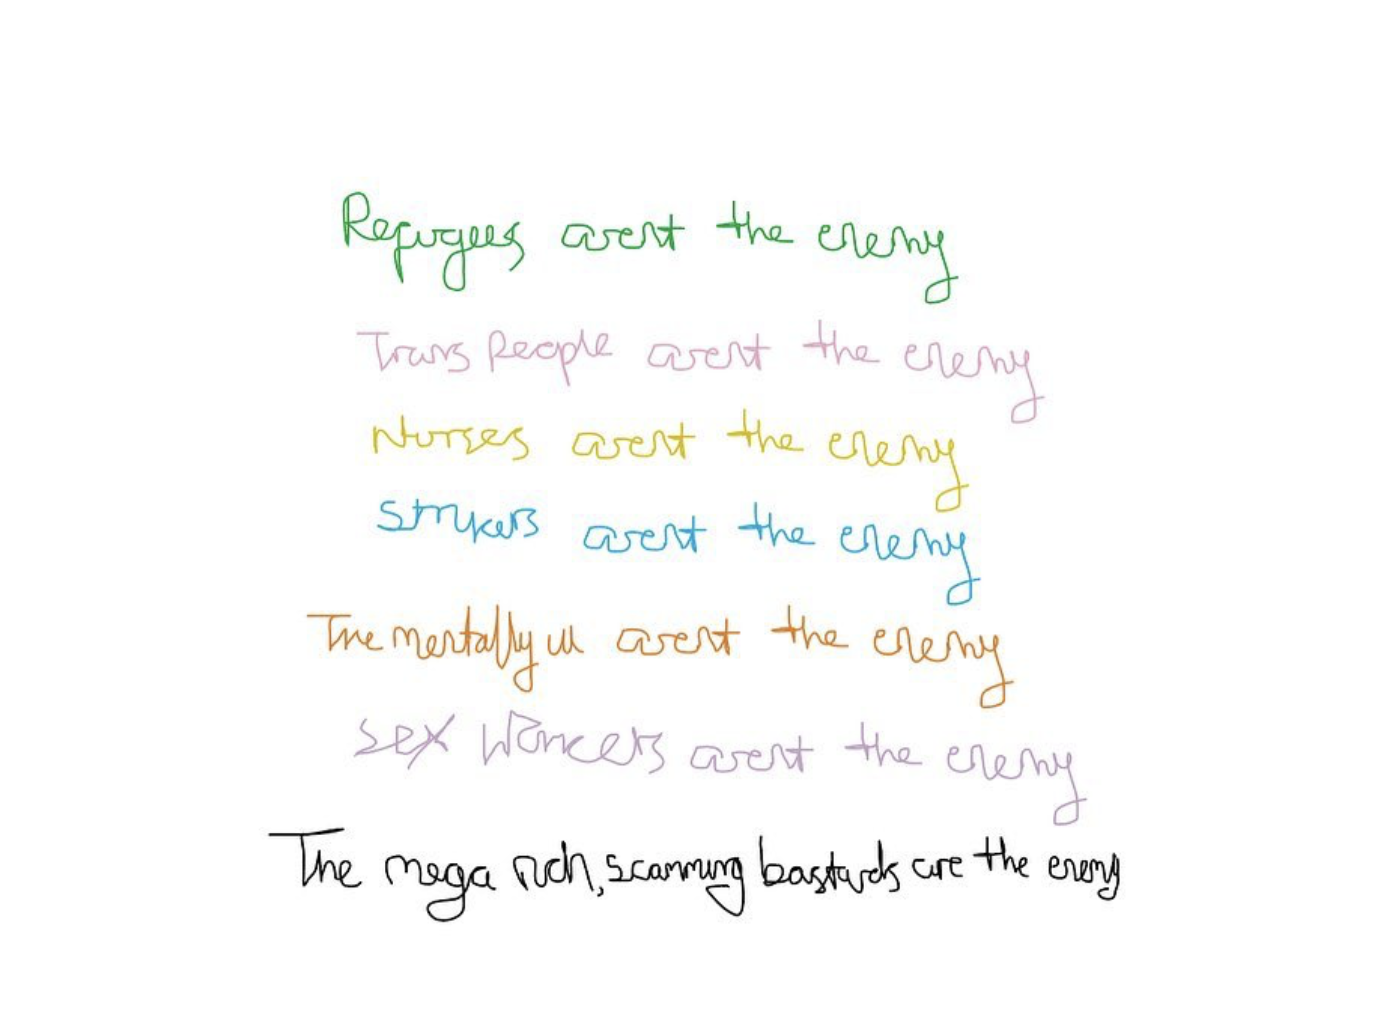 Refugees arent the enemy
Trans People arent the enemy
Nurses arent the enemy
Strikers arent the enemy
The mentally ill arent the enemy
Sex Workers arent the enemy
The mega rich, scamming bastards are the enemy